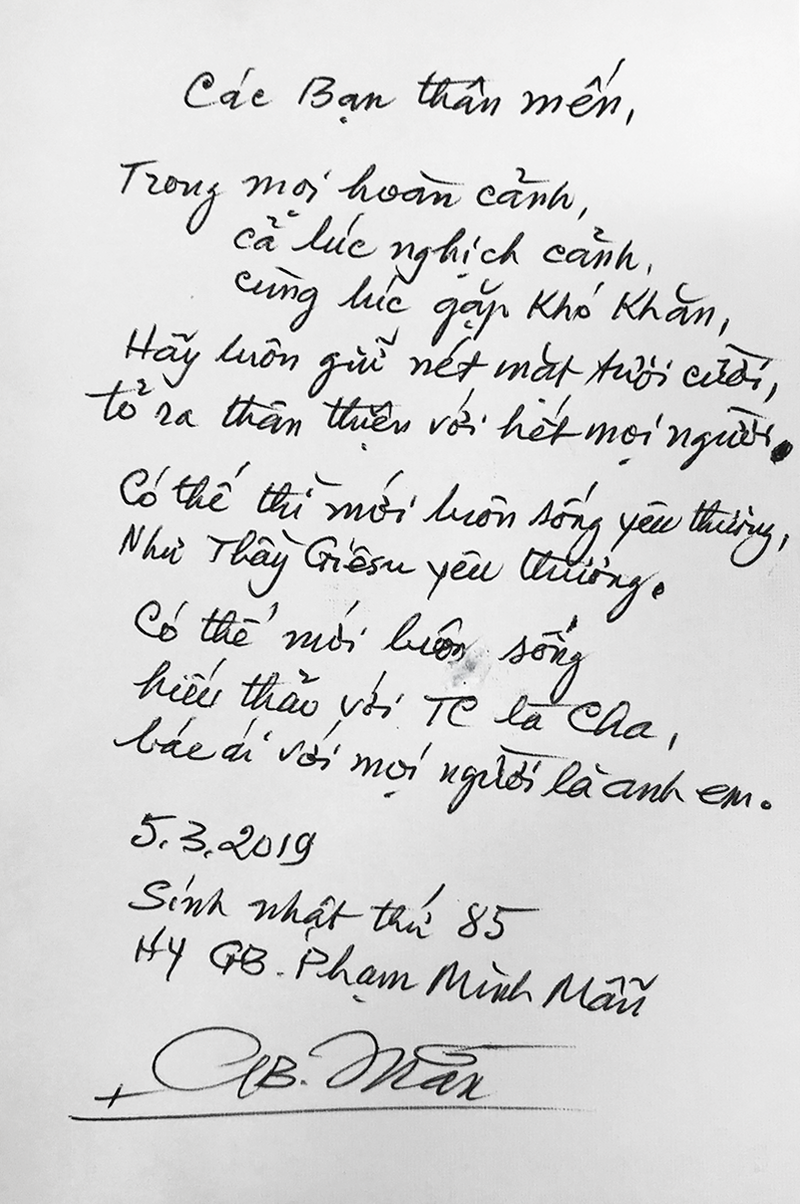 Các Bạn thân mến,
Trong mọi hoàn cảnh,
cả lúc nghịch cảnh,
cùng lúc gặp khó khăn,
Hãy luôn giữ nét mặt tươi cười,
tỏ ra thân thiện với hết mọi người.
Có thế thì mới luôn sống yêu thương,
Như Thầy Giêsu yêu thương.
Có thế mới luôn sống
hiếu thảo với TC là Cha,
bác ái với mọi người là anh em.
5.3.2019
Sinh nhật thứ 85
HY GB. Phạm Minh Mẫn
+ GB. Mẫn